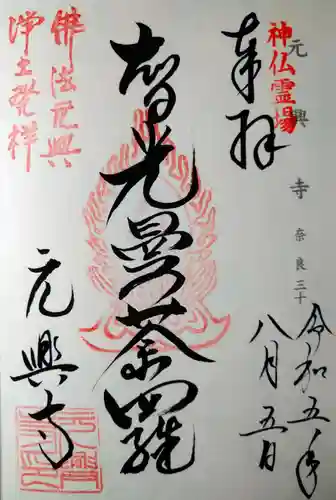 奉拝
神仏霊場
元興寺 奈良三十
令和五年
八月五日
智光曼荼羅
佛法元興
浄土発祥
元興寺